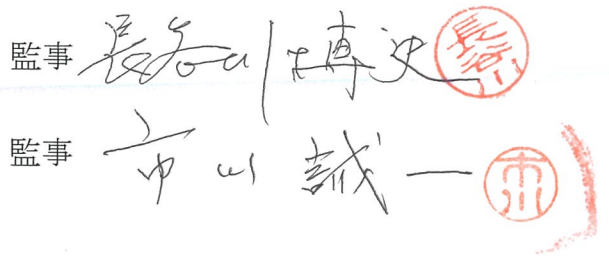 監事 長谷川博史 長谷川
監事 市川 誠一 市川